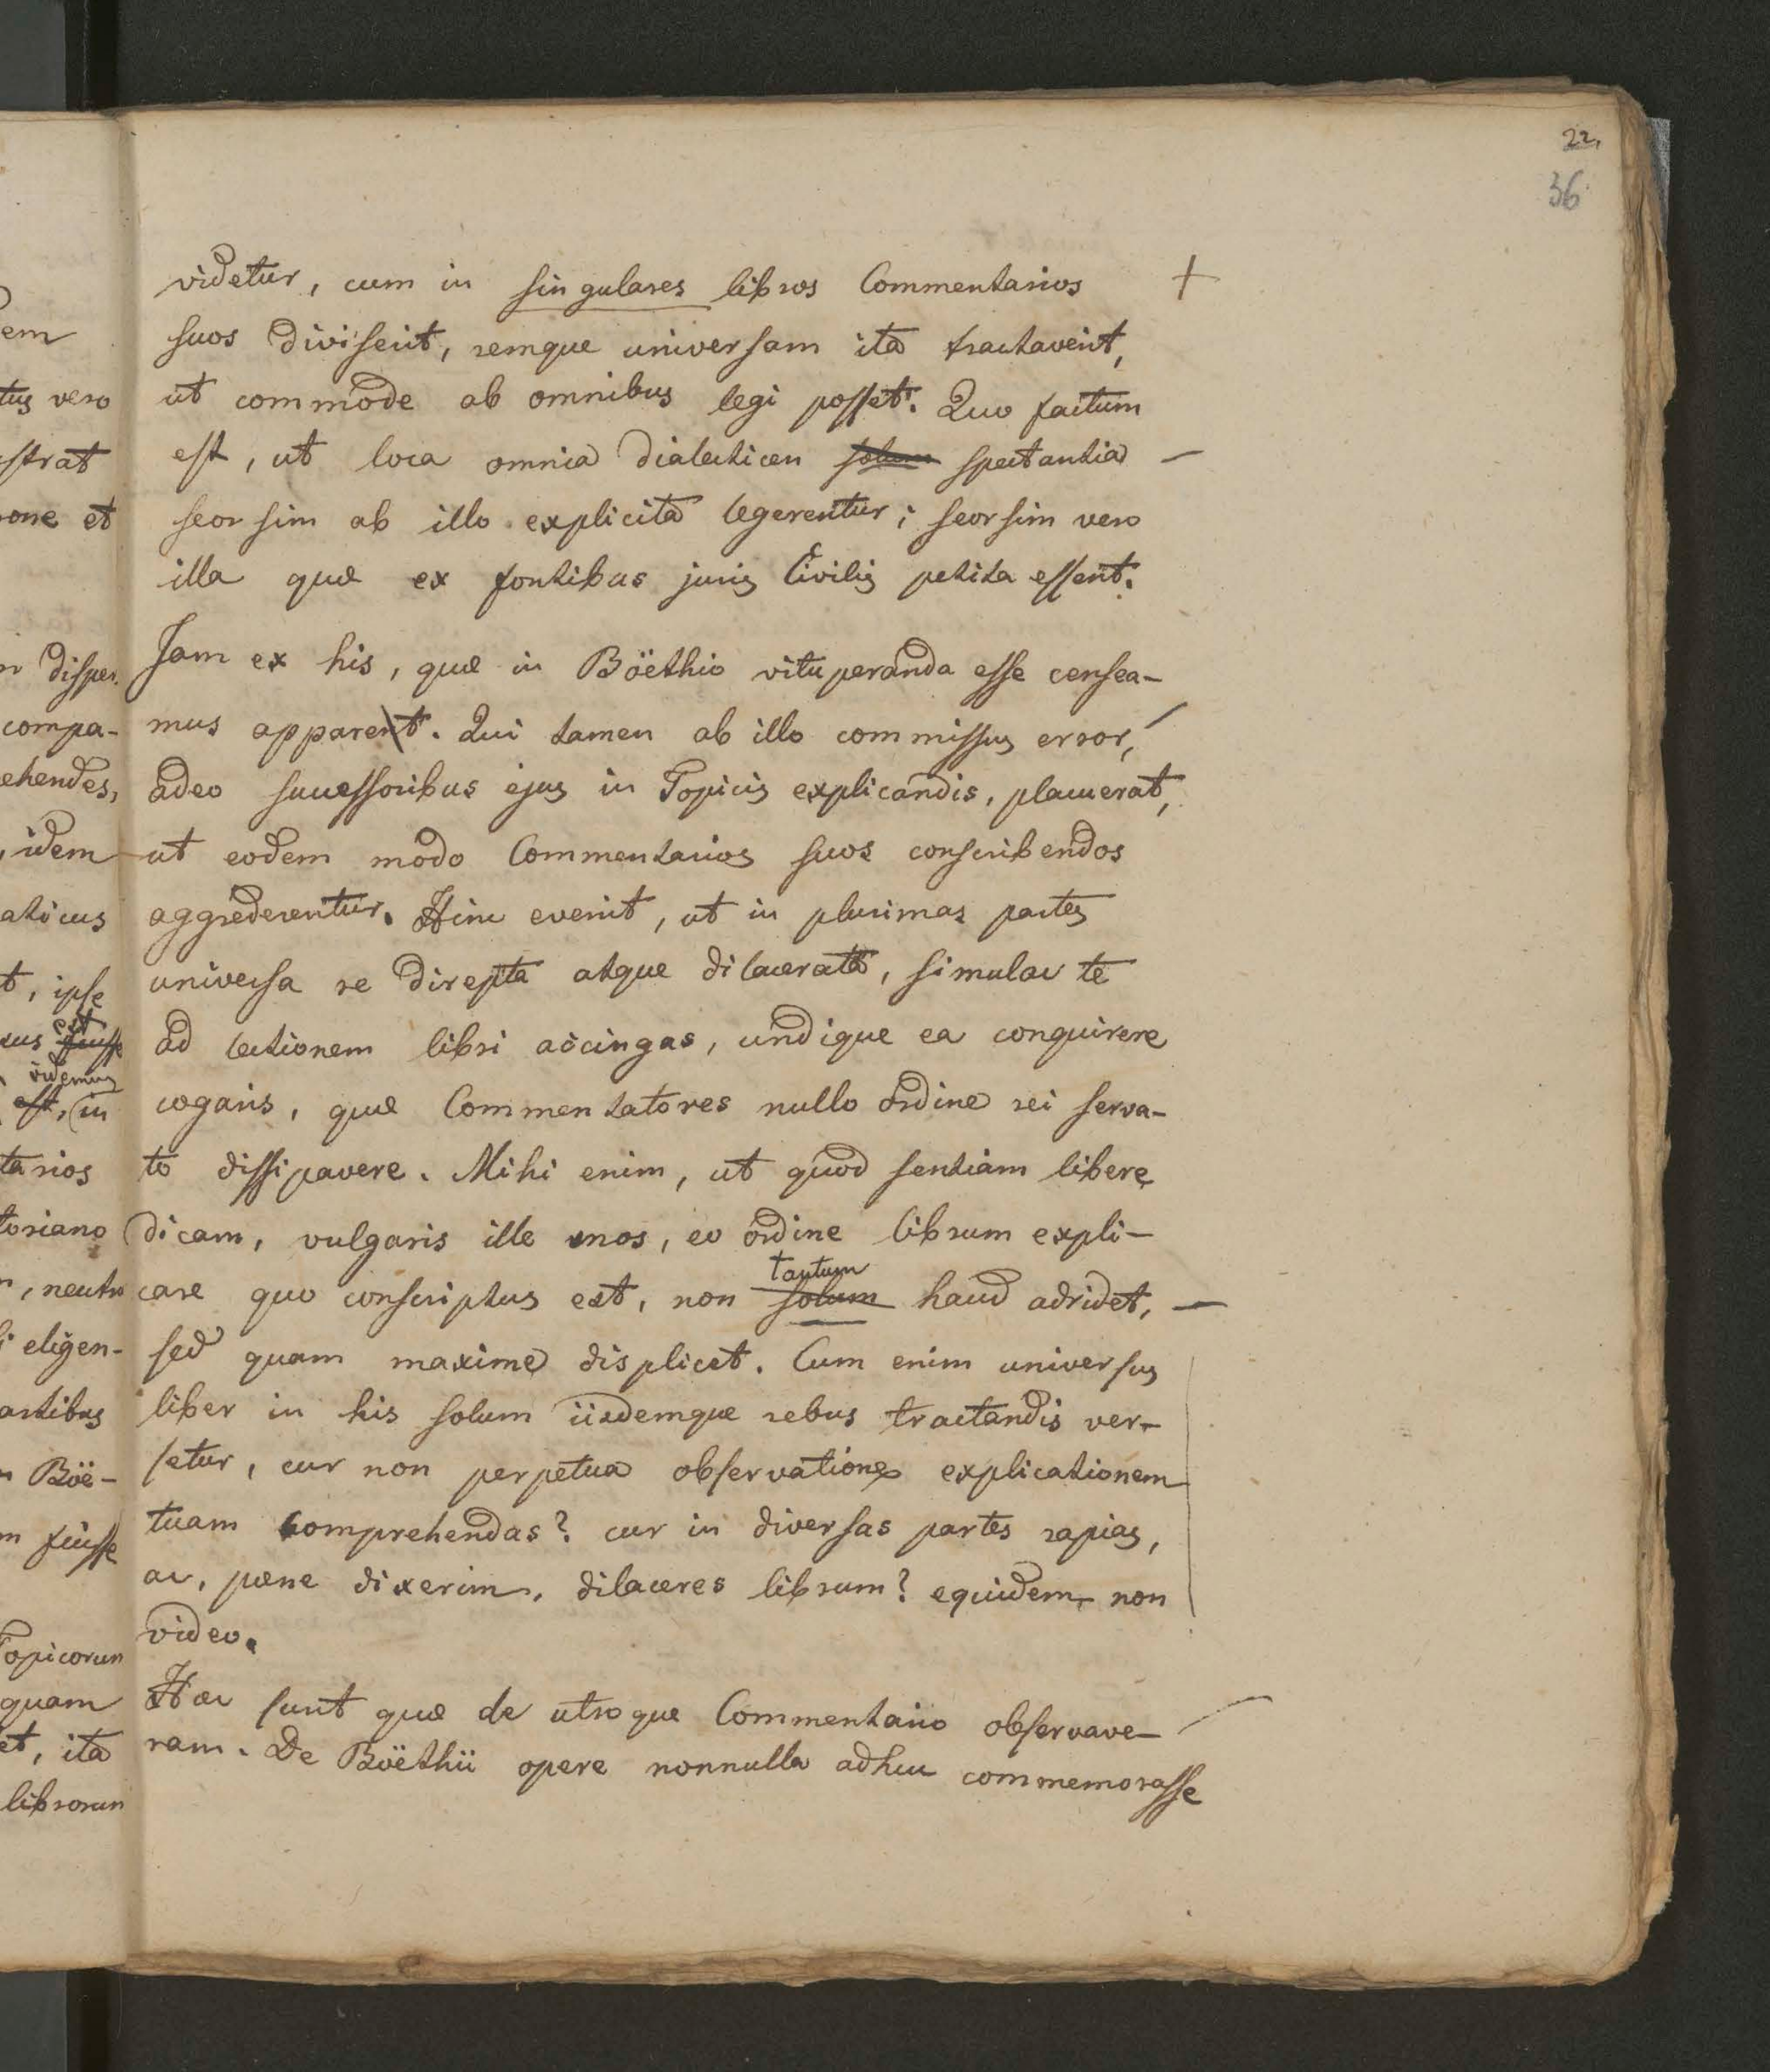 22,
36
videtur, cum in singulares libros Commentarios +
suos diviserit, remque universam ita tractaverit,
ut commode ab omnibus legi posset. Quo factum
est, ut loca omnia dialecticen solum spectantia –
seorsim ab illo explicita legerentur; seorsim vero
illa quæ ex fontibus juris Civilis petita essent.
Jam ex his, quæ in Böethio vituperanda esse censea-
mus apparent. Qui tamen ab illo commissus error,
adeo successoribus ejus in Topicis explicandis, placuerat,
ut eodem modo Commentarios suos conscribendos
aggrederentur. Hinc evenit, ut in plurimas partes
universa re direpta atque dilacerata, simulac te
ad lectionem libri accingas, undique ea conquirere
cogaris, quæ Commentatores nullo ordine rei serva-
to dissipavere. Mihi enim, ut quod sentiam libere
dicam, vulgaris ille mos, eo ordine librum expli-
tantum
care quo conscriptus est, non solum haud adridet, –
sed quam maxime displicet. Cum enim universus
liber in his solum iisdemque rebus tractandis ver-
setur, cur non perpetua observatione explicationem
tuam comprehendas? cur in diversas partes rapias,
ac, pæne dixerim, dilaceres librum? equidem non
video.
Hæc sunt quæ de utroque Commentario observave-
ram. De Böethii opere nonnulla adhuc commemorasse
em
tus vero
strat
one et
disper
compa-
ehendes,
idem
aticus
t, ipse
est
sus fuisse
videmus
est, in
tarios
toriano
, neutro
eligen-
artibus
Böë-
fuisse
Topicorum
quam
et, ita
librorum